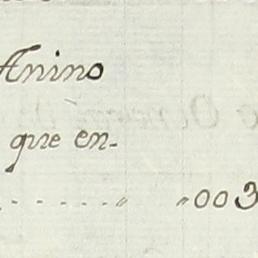 Anino
que en-
. . . . . . . " "003